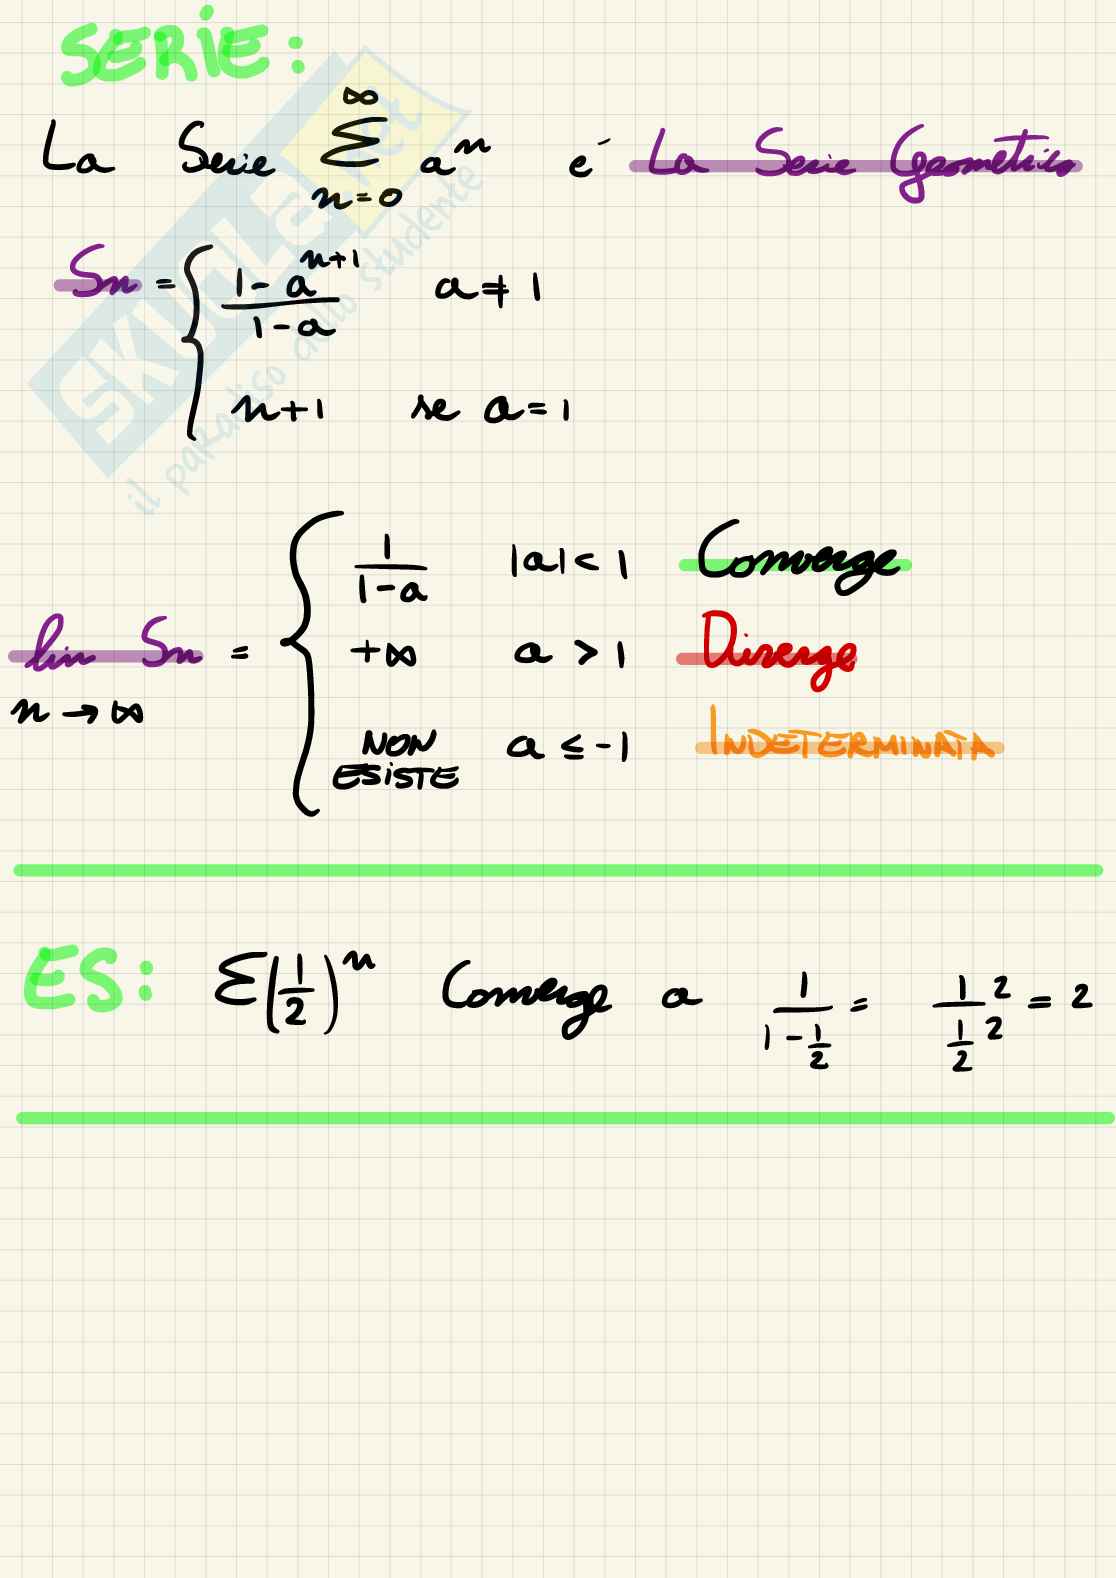 SERIE:
La Serie ∞ Σ n=0 aⁿ e' La Serie Geometrica
Sn = { 1-aⁿ⁺¹ / 1-a   a ≠ 1
n+1   se a = 1
lim n→∞ Sn = { 1 / 1-a   |a| < 1   Converge
+∞   a > 1   Diverge
NON ESISTE   a ≤ -1   INDETERMINATA
ES: Σ(1/2)ⁿ Converge a 1 / 1-1/2 = 1 2 / 1/2 2 = 2
SKUOLA.net
il paradiso dello studente